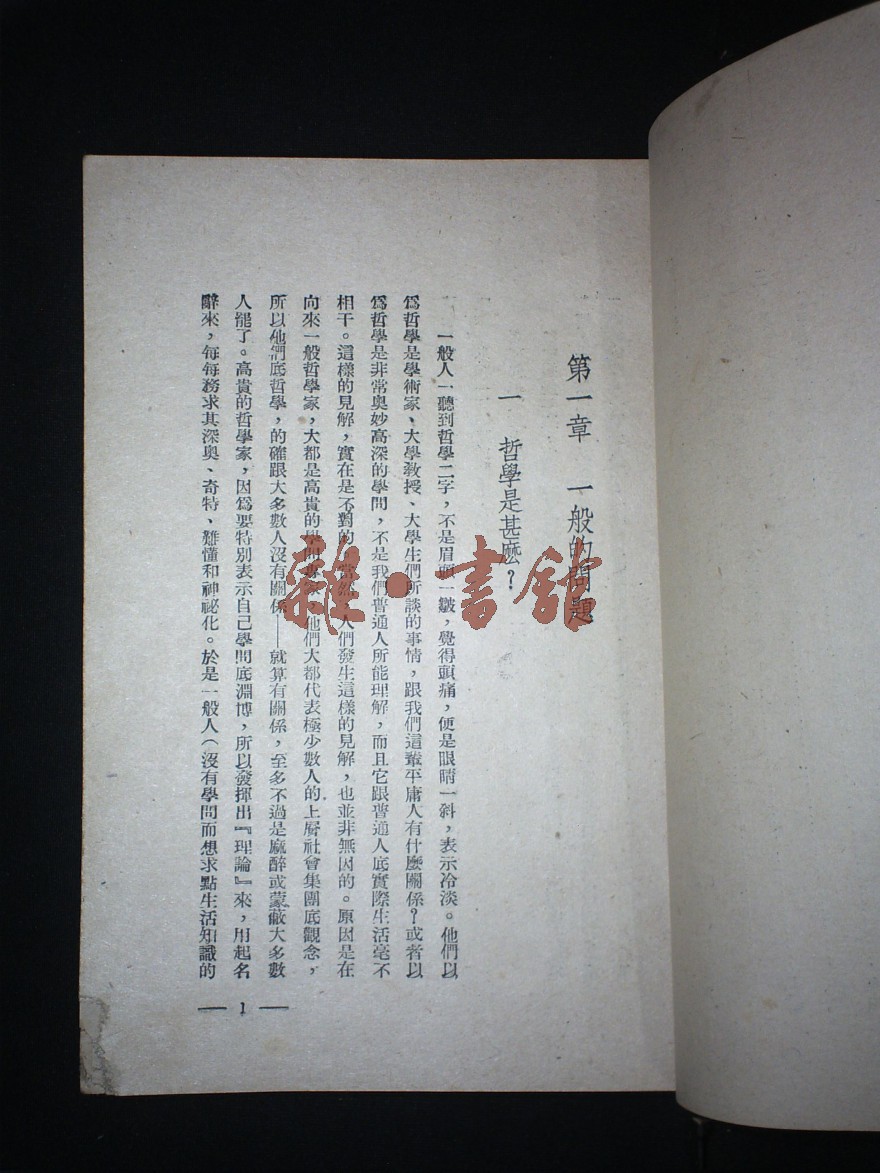 第一章　一般的問題
一　哲學是甚麼？
一般人一聽到哲學二字，不是眉頭一皺，覺得頭痛，便是眼睛一斜，表示冷淡。他們以
爲哲學是學術家、大學教授、大學生們所談的事情，跟我們這羣平庸人有什麼關係？或者以
爲哲學是非常奧妙高深的學問，不是我們普通人所能理解，而且它跟普通人底實際生活毫不
相干。這樣的見解，實在是不對的。當然，人們發生這樣的見解，也並非無因的。原因是在
向來一般哲學家，大都是高貴的學問專家，他們大都代表極少數人的上層社會集團底觀念，
所以他們底哲學，的確跟大多數人沒有關係——就算有關係，至多不過是麻醉或蒙蔽大多數
人罷了。高貴的哲學家，因爲要特別表示自己學問底淵博，所以發揮出『理論』來，用起名
辭來，每每務求其深奧、奇特、難懂和神祕化。於是一般人（沒有學問而想求點生活知識的
— 1 —
雜·書館